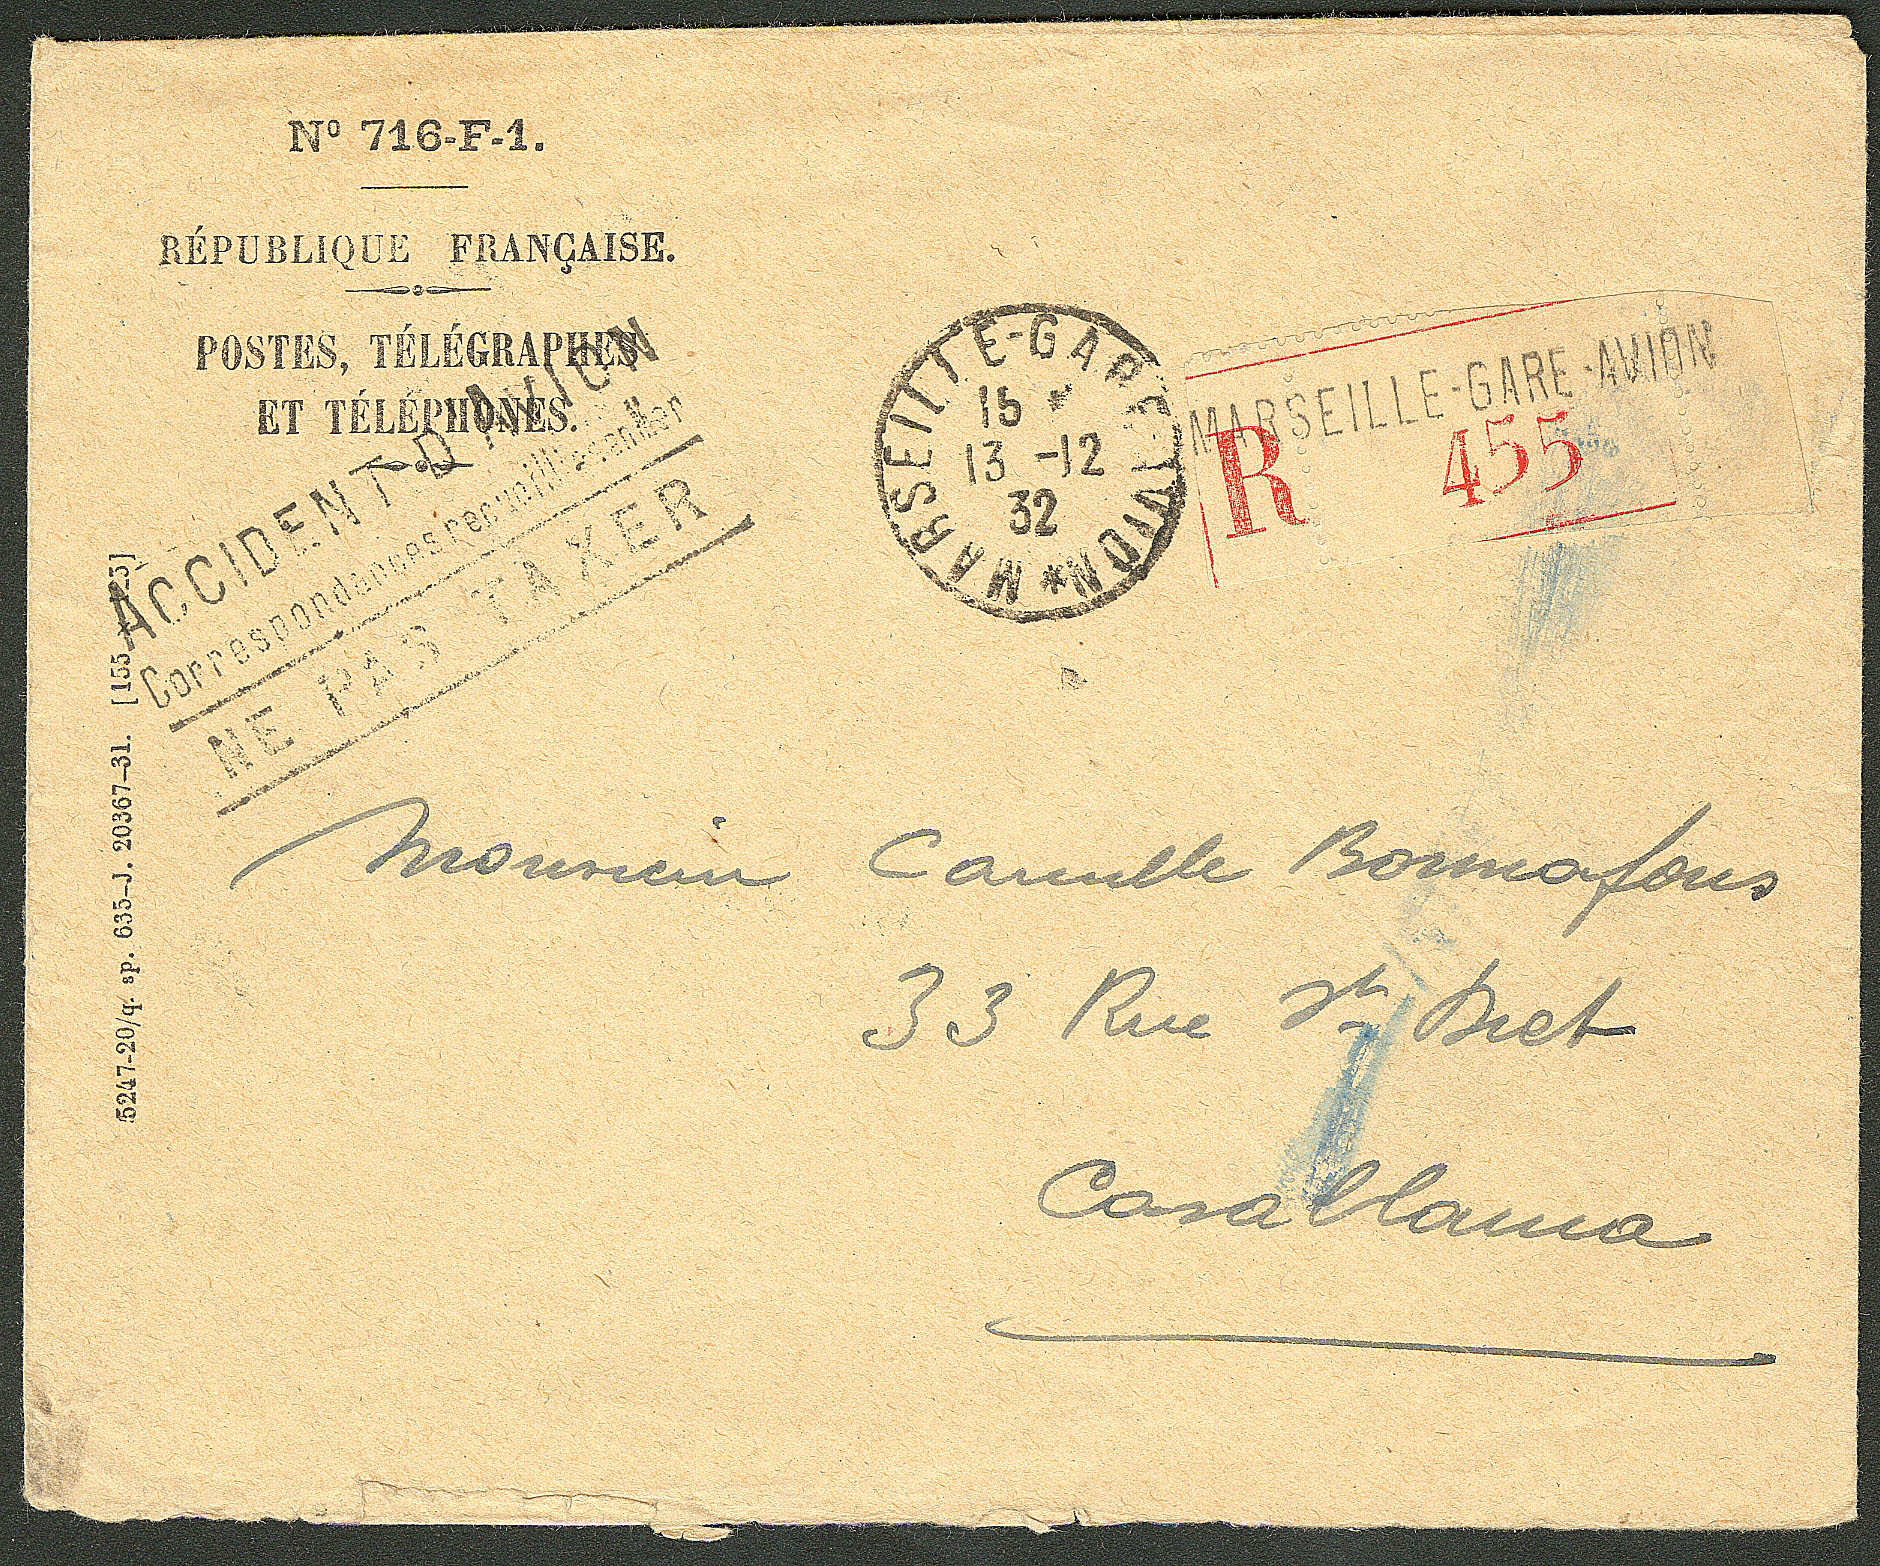 Nº 716-F-1.
RÉPUBLIQUE FRANÇAISE.
POSTES, TÉLÉGRAPHES
ET TÉLÉPHONES.
ACCIDENT D'AVION
Correspondances recueillies en Mer
NE PAS TAXER
MARSEILLE-GARE-AVION
15 *
13 -12
32
MARSEILLE-GARE-AVION
R 455
5247-20/q. sp. 635-J. 20367-31. [155
Monsieur Camille Bonnafous
33 Rue
Casablanca